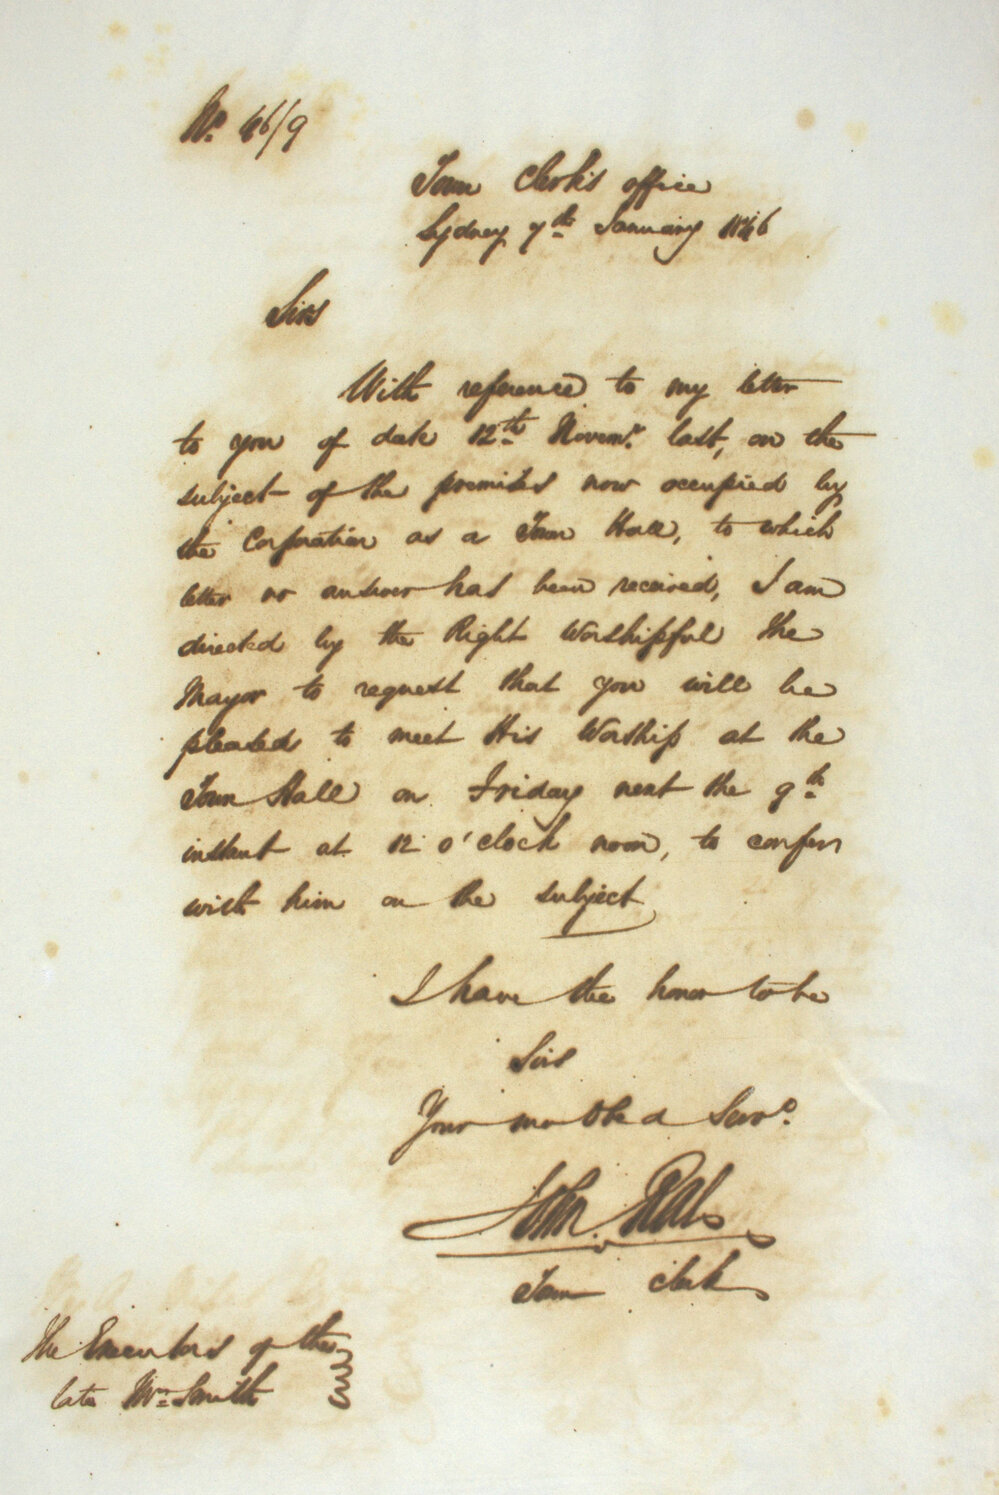 No. 46/9
Town Clerk's office
Sydney 7th January 1846
Sirs
With reference to my letter
to you of date 12th Novemr. last, on the
subject of the premises now occupied by
the Corporation as a Town Hall, to which
letter no answer has been received, I am
directed by the Right Worshipful the
Mayor to request that you will be
pleased to meet His Worship at the
Town Hall on Friday next the 9th
instant at 12 o'clock noon, to confer
with him on the subject
I have the honor to be
Sirs
Your mo Obed Servt.
John
Town Clerk
The Executors of the
late Mr. Smith